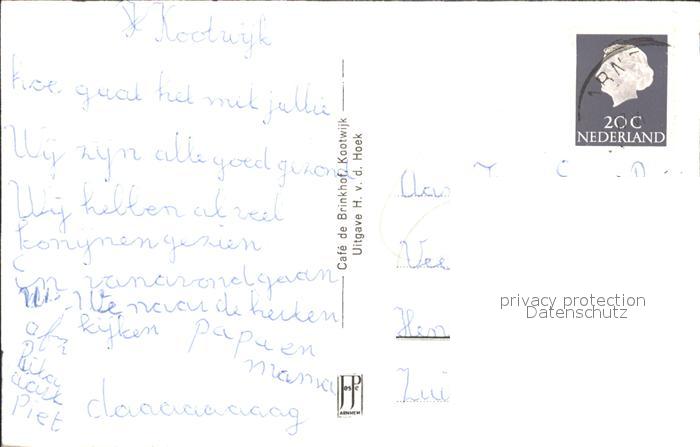 Kootwijk
hoe gaat het met jullie
Wij zijn alle goed gezond
Wij hebben al veel
konijnen gezien
en vanavond gaan
We naar de herten
kijken papa en
mama
Piet daaaaaaaag
Café de Brinkhof, Kootwijk
Uitgave H. v. d. Hoek
JosPé
ARNHEM
20 C
NEDERLAND
Aan
Vee
Hen
Zui
privacy protection
Datenschutz